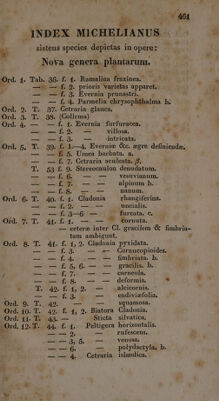 461
INDEX MICHELIANUS
sistens species depictas in opere:
Nova genera plantarum.
Ord. 1. Tab. 36. f. 1. Ramalina fraxinea.
— — f. 2. prioris varietas apparet.
— — f. 3. Evernia prunastri.
— — f. 4. Parmelia chrysophthalma b.
Ord. 2. T. 37. Cetraria glauca.
Ord. 3. T. 38. (Collema)
Ord. 4. — — f. 1. Evernia furfuracea.
— — f. 2. — villosa.
— — f. 3. — intricata.
Ord. 5. T. 39. f. 1.—4. Everniæ &c. ægre definiendæ.
— — f. 5. Usnea barbata. a.
— — f. 7. Cetraria aculeata. β.
T. 53 f. 5. Stereocaulon denudatum.
— — f. 6. — — vesuvianum.
— — f. 7. — — alpinum b.
— — f. 8. — — nanum.
Ord. 6. T. 40. f. 1. Cladonia rhangiferina.
— — f. 2. — uncialis.
— — f. 3—6 — furcata. c.
Ord. 7. T. 41. f. 1. — — cornuta.
— ceteræ inter Cl. gracilem & fimbria-
tam ambigunt.
Ord. 8. T. 41. f. 1, 2. Cladonia pyxidata.
— — f. 3. — — Cornucopioides.
— — f. 4. — — fimbriata. b.
— — f. 5, 6. — — gracilis. b.
— — f. 7. — — carneola.
— — f. 8. — — deformis.
T. 42. f. 1, 2. — alcicornis.
— — f. 3. — endiviæfolia.
Ord. 9. T. 42. squamosa.
Ord. 10. T. 42. f. 1, 2. Biatora Cladonia.
Ord. 11. T. 43. — Sticta silvatica.
Ord. 12. T. 44. f. 1. Peltigera horizontalis.
— — 2. — rufescens.
— — 3, 5. — venosa.
— — 6. — polydactyla. b.
— — 4. Cetraria islandica.